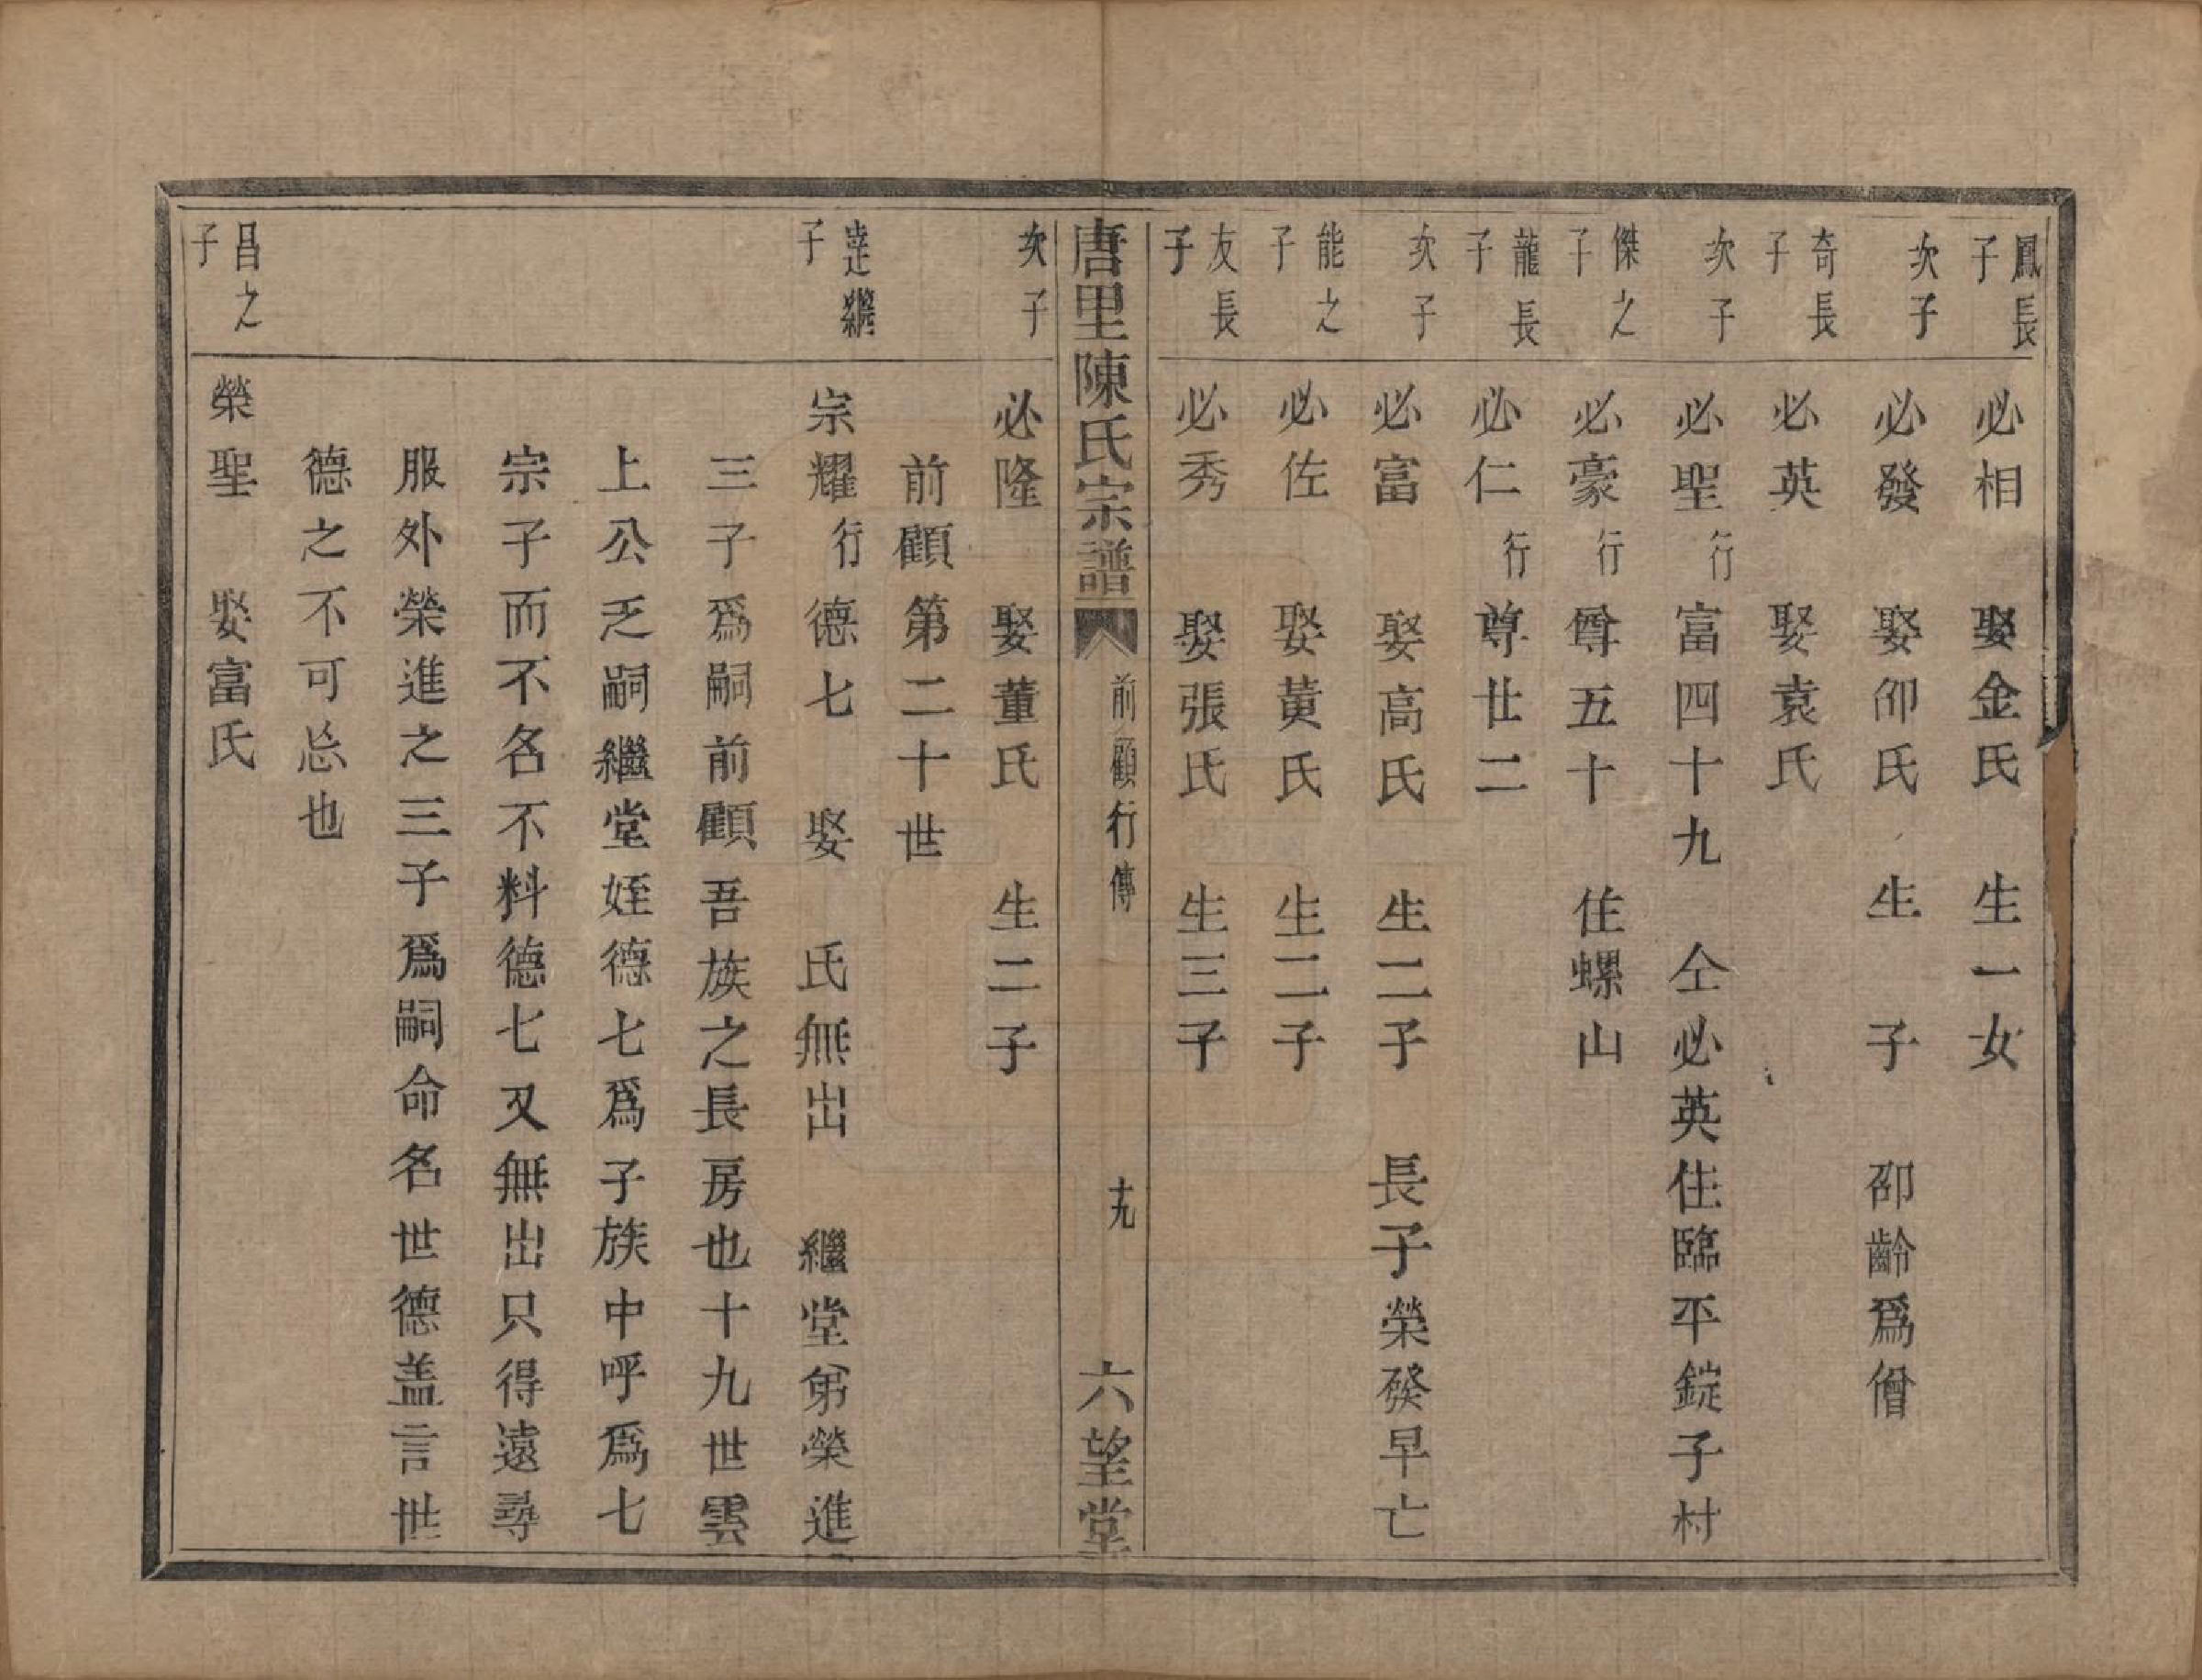 鳳長子　必相　娶金氏　生一女
次子　必發　娶邵氏　生　子　邵齡爲僧
奇長子　必英　娶袁氏
次子　必聖行富四十九　仝必英住臨平錠子村
傑之子　必豪行尊五十　住螺山
龍長子　必仁行尊廿二
次子　必富　娶高氏　生二子　長子榮發早亡
能之子　必佐　娶黃氏　生二子
友長子　必秀　娶張氏　生三子
唐里陳氏宗譜　前顧行傳　十九　六望堂
次子　必隆　娶董氏　生二子
前顧第二十世
逵繼子　宗耀行德七　娶　氏無出　繼堂弟榮進
三子爲嗣前顧吾族之長房也十九世雲
上公乏嗣繼堂姪德七爲子族中呼爲七
宗子而不名不料德七又無出只得遠尋
服外榮進之三子爲嗣命名世德盖言世
德之不可忘也
昌之子　榮聖　娶富氏